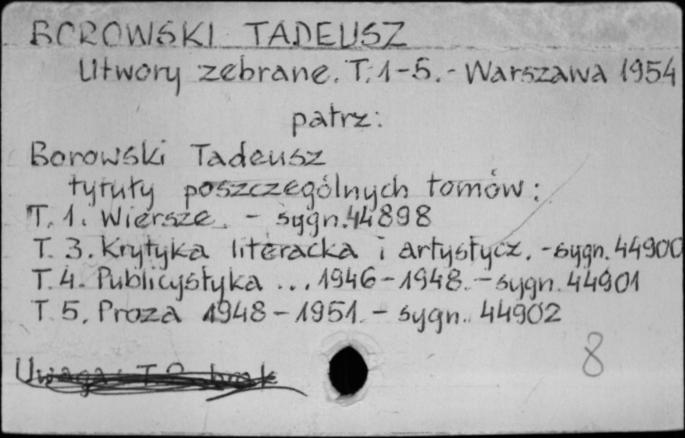 BOROWSKI TADEUSZ
Utwory zebrane. T. 1-5. - Warszawa 1954
patrz:
Borowski Tadeusz
tytuły poszczególnych tomów:
T. 1. Wiersze. - sygn. 44898
T. 3. Krytyka literacka i artystycz. - sygn. 44900
T. 4. Publicystyka ... 1946-1948. - sygn. 44901
T. 5. Proza 1948-1951. - sygn. 44902
8
Uwaga: T. 2. brak